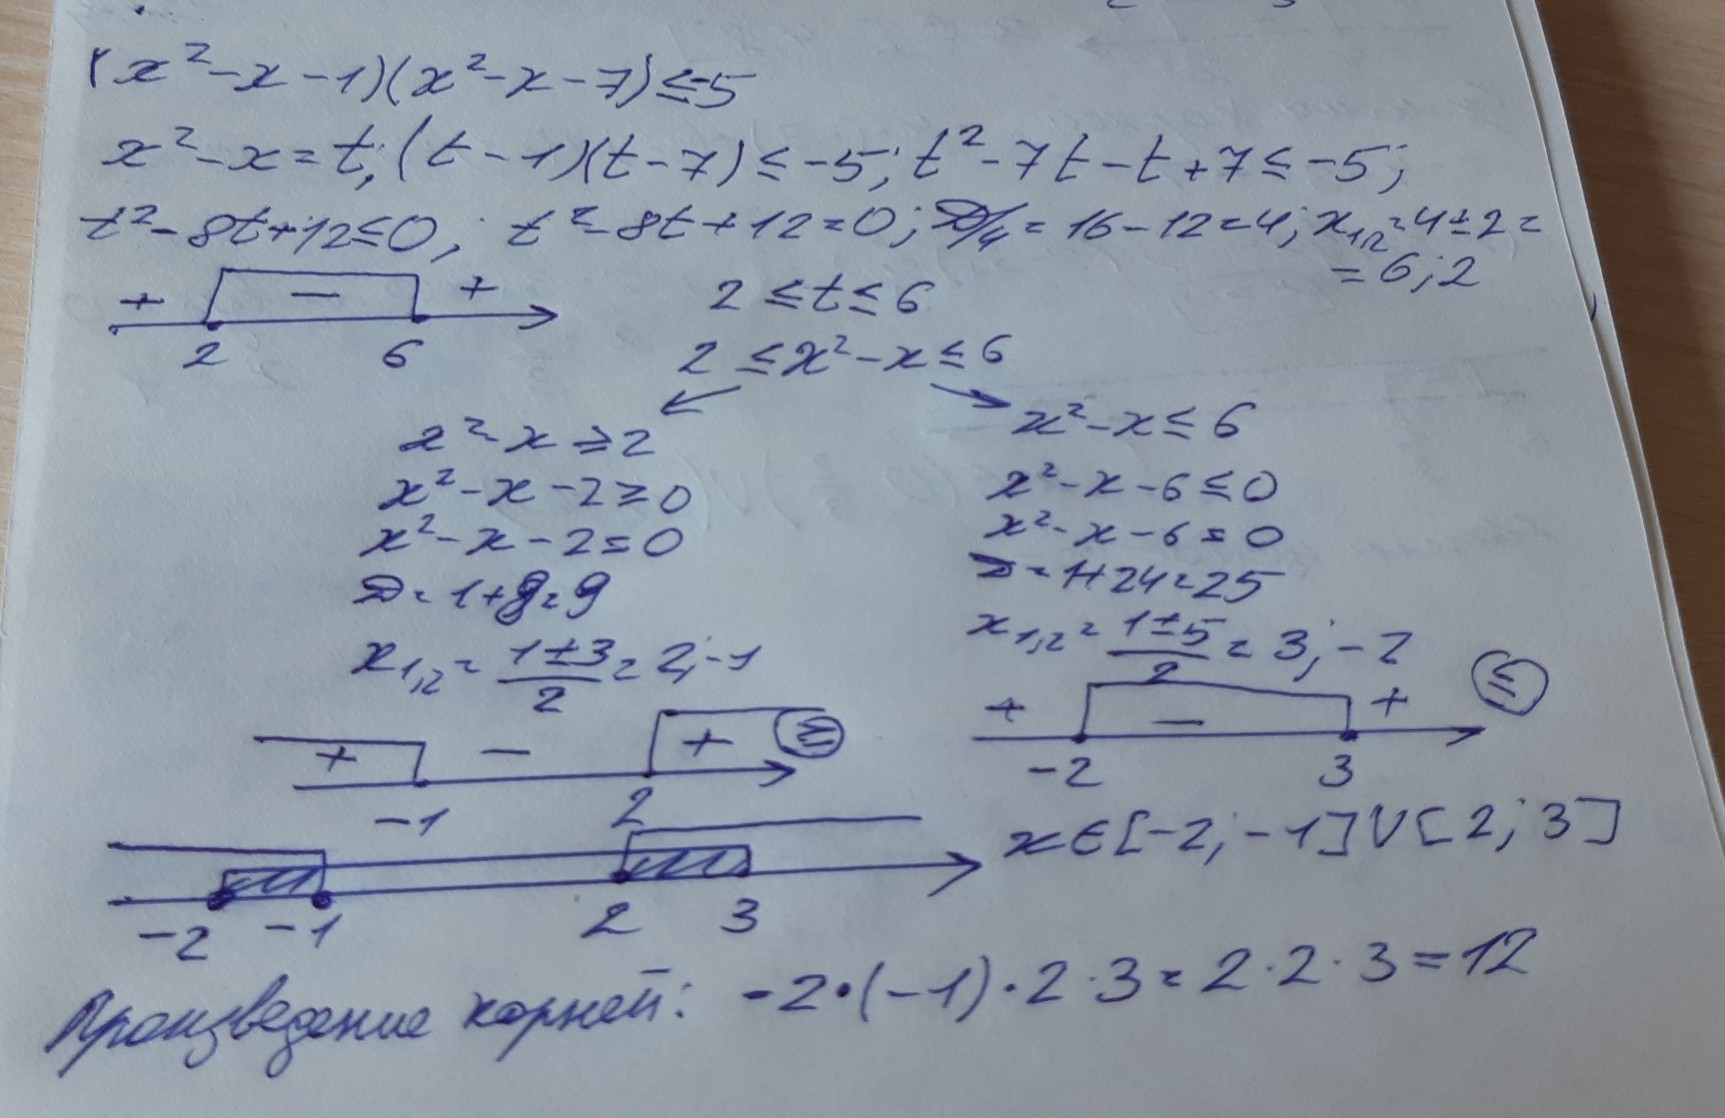 (x²-x-1)(x²-x-7)≤-5
x²-x=t; (t-1)(t-7)≤-5; t²-7t-t+7≤-5;
t²-8t+12≤0; t²-8t+12=0; D/4=16-12=4; x₁,₂=4±2=
=6;2
+ - +
2 6
2≤t≤6
2≤x²-x≤6
x²-x≥2
x²-x-2≥0
x²-x-2=0
D=1+8=9
x₁,₂=(1±3)/2=2;-1
+ - + ≥
-1 2
x²-x≤6
x²-x-6≤0
x²-x-6=0
D=1+24=25
x₁,₂=(1±5)/2=3;-2
+ - + ≤
-2 3
-2 -1 2 3
x∈[-2;-1]∪[2;3]
Произведение корней: -2·(-1)·2·3=2·2·3=12